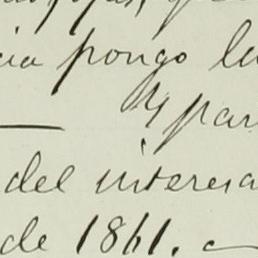 cia pongo la
Y par
del interesa
de 1861.